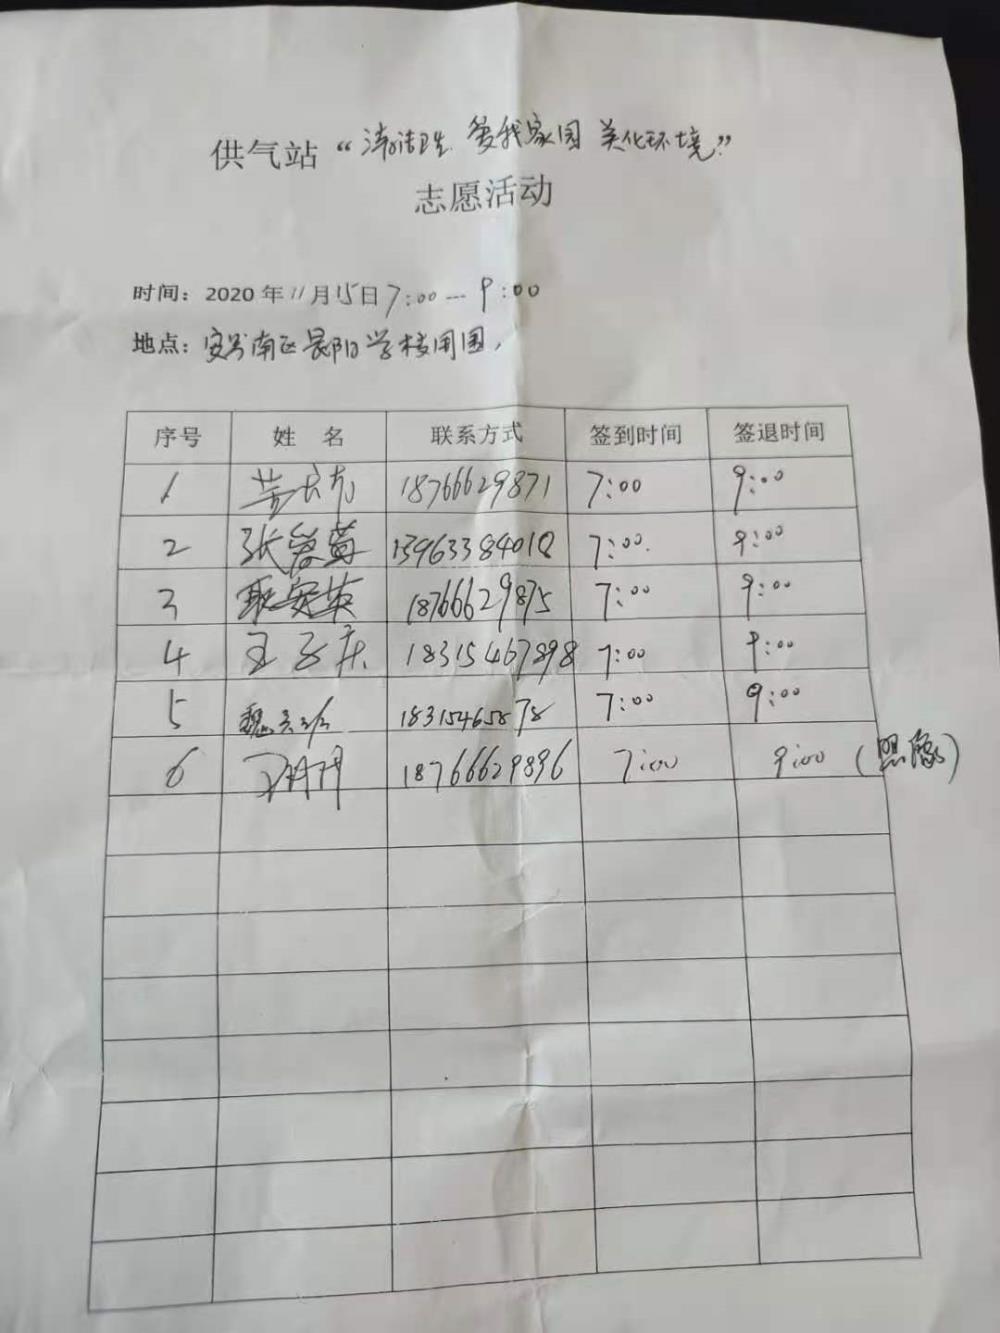 供气站“清洁卫生 爱我家园 美化环境”
志愿活动
时间：2020年11月15日7:00—9:00
地点：南区晨阳学校周围，
序号 姓 名 联系方式 签到时间 签退时间
1 18766629871 7:00 9:00
2 张爱菊 13963384018 7:00. 9:00
3 耿安英 18766629875 7:00 9:00
4 王玉庆 18315467898 7:00 9:00
5 魏 18315465878 7:00 9:00
6 18766629896 7:00 9:00 (照像)